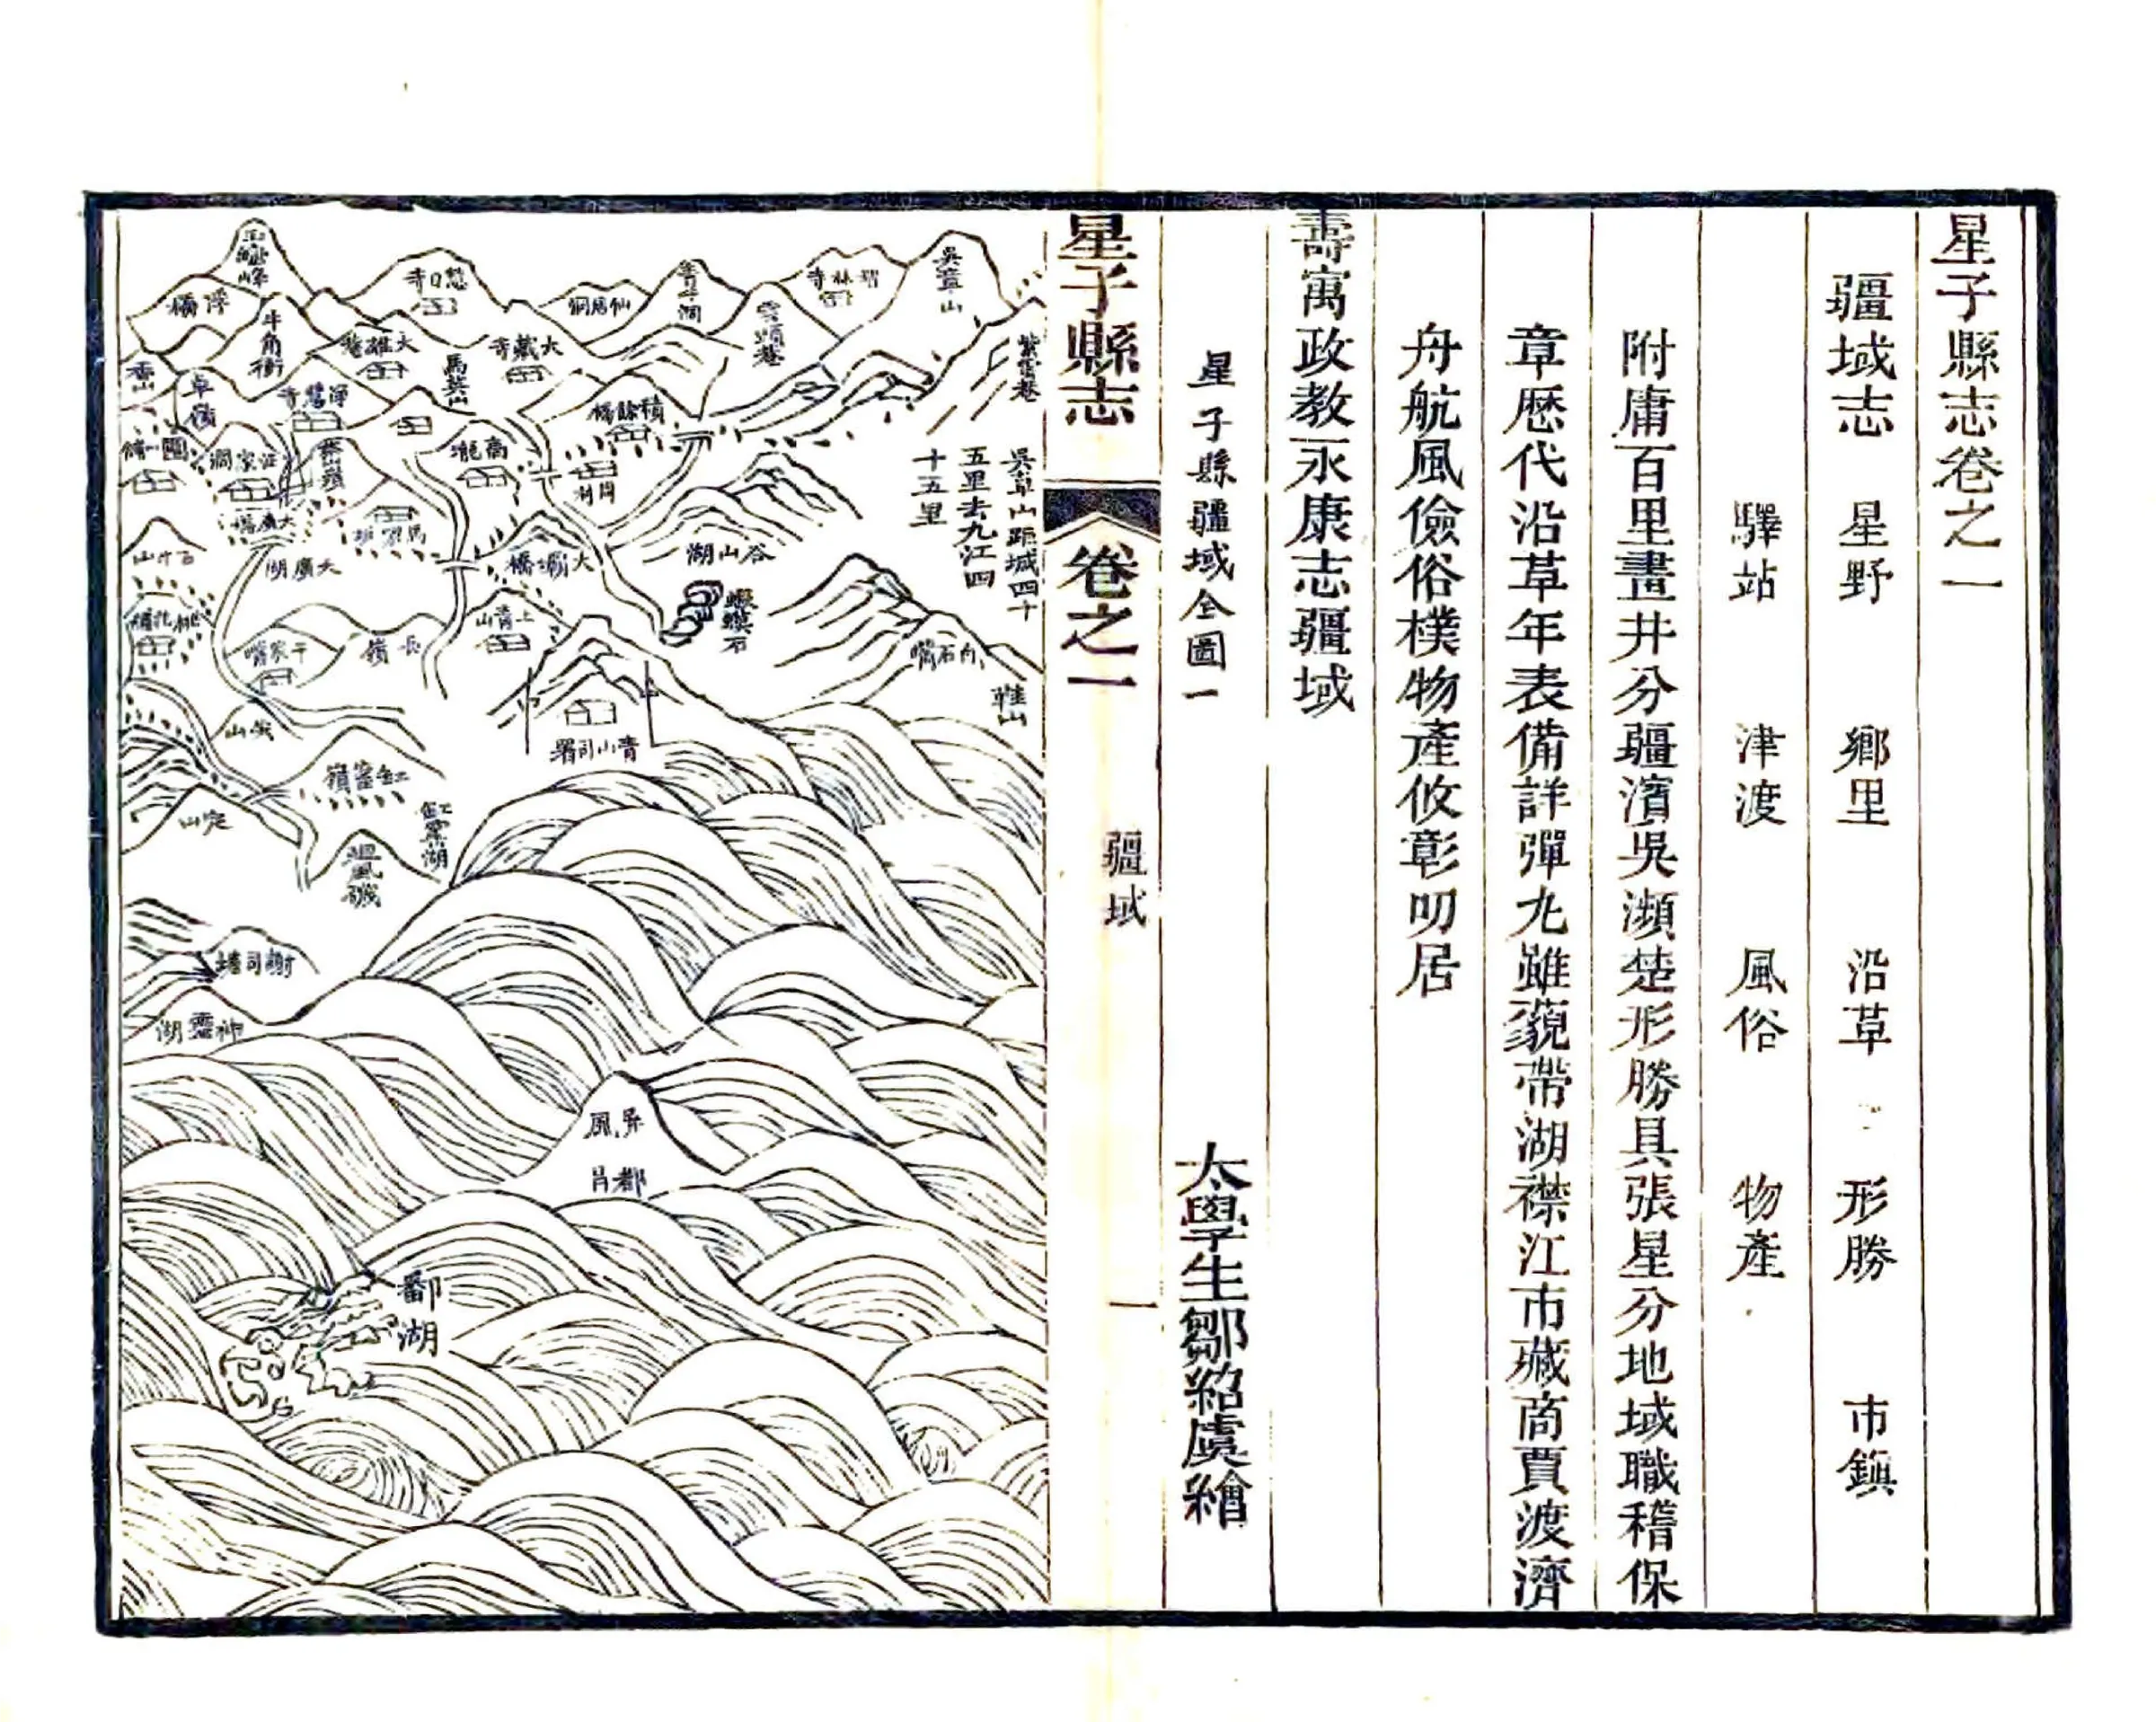 星子縣志卷之一
疆域志 星野 鄉里 沿革 形勝 市鎮
驛站 津渡 風俗 物產
附庸百里畫井分疆濱吳瀕楚形勝具張星分地域職稽保
章歷代沿革年表備詳彈丸雖藐帶湖襟江市藏商賈渡濟
舟航風儉俗樸物產攸彰叨居
壽寓政教永康志疆域
星子縣疆域全圖一 太學生鄒紹虞繪
星子縣志 卷之一 疆域 一
吳章山
紫雲菴
智林寺
雲頭菴
青牛洞
仙居洞
慧日寺
牛角衝
大雄菴
大藏寺
馬鞍山
積餘橋
香山
卓嶺
高龍
汪家洞
大廣橋
大廣湖
吳章山距城四十
五里去九江四
十五里
谷山湖
蝦蟆石
大塘橋
上青山
青山司署
長嶺
于家嘴
白石嘴
鞋山
定山
缸窰嶺
缸窰湖
謝司塘
神靈湖
屏風
都昌
鄱湖